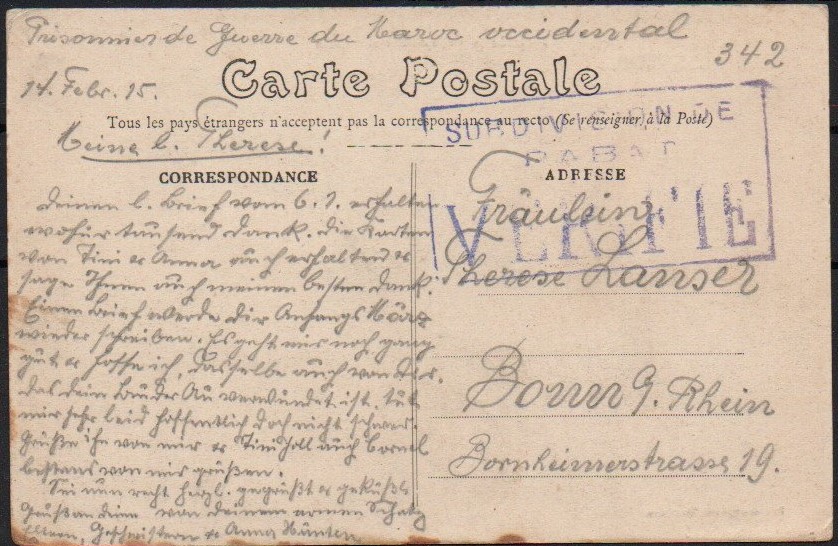 Prisonnier de Guerre du Maroc occidental
342
Carte Postale
14. Febr. 15.
Tous les pays étrangers n'acceptent pas la correspondance au recto (Se renseigner à la Poste)
SUBDIVISION DE
RABAT
VERIFIE
Meine l. Therese!
CORRESPONDANCE
deinen l. Brief vom 6. 1. erhalten
wofür tausend dank. die Karten
von Tini & Anna auch erhalten &
sage Ihnen auch meinen besten dank.
Einen Brief werde dir Anfangs März
wieder schreiben. Es geht mir noch ganz
gut & hoffe ich, dasselbe auch von dir.
das dein Bruder verwundet ist, tut
mir sehr leid hoffentlich doch nicht schwer.
Grüße ihn von mir & Tini soll auch
bestens von mir grüßen.
Sei nun recht herzl. gegrüßt & geküßt
Gruß an deine von deinem armen Schatz
Eltern, Geschwistern & Anna
ADRESSE
Fräulein
Therese Lanser
Bonn a. Rhein
Bornheimerstrasse 19.